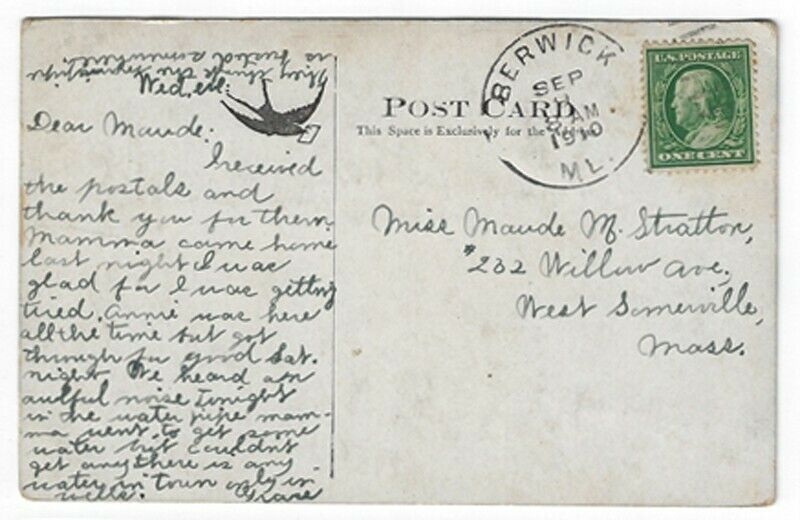 Wed. eve.
Dear Maude:
I received
the postals and
thank you for them.
Mamma came home
last night I was
glad for I was getting
tired. Annie was here
all the time but got
through for good Sat.
night. We heard an
awful noise tonight
in the water pipe mam-
ma went to get some
water but couldn't
get any there is any
water in town only in
wells. Grace
They think the
is busted somewhere.
POST CARD
This Space is Exclusively for the
BERWICK
SEP
AM
1910
ME.
U.S. POSTAGE
ONE CENT
Miss Maude M. Stratton,
#232 Willow Ave.,
West Somerville,
Mass.